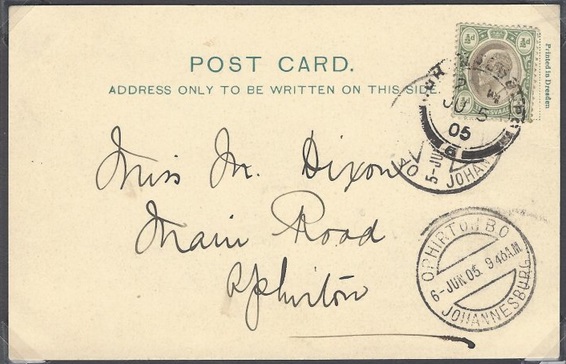 POST CARD.
ADDRESS ONLY TO BE WRITTEN ON THIS SIDE.
Printed in Dresden
½d ½d
JU 5
05
6
5-JU
JOHAN
Miss M. Dixon
Main Road
Ophirton
OPHIRTON B.O
6-JUN 05 9 48 A.M
JOHANNESBURG